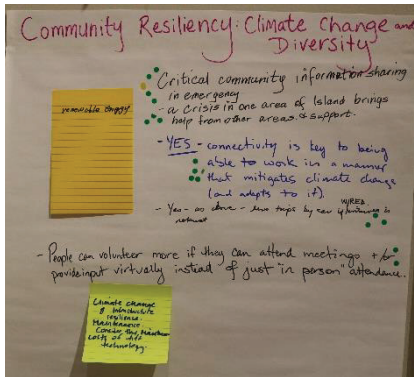 Community Resiliency: Climate Change and
Diversity
Critical community information sharing
in emergency
- a crisis in one area of Island brings
help from other areas & support.
renewable energy
- YES - connectivity is key to being
able to work in a manner
that mitigates climate change
(and adapts to it).
- Yes - as above - less trips by car if
WIRED
- People can volunteer more if they can attend meetings + / or
provide input virtually instead of just "in person" attendance.
Climate change
& infrastructure
resilience.
Maintenance
Consider
costs of diff
technology.